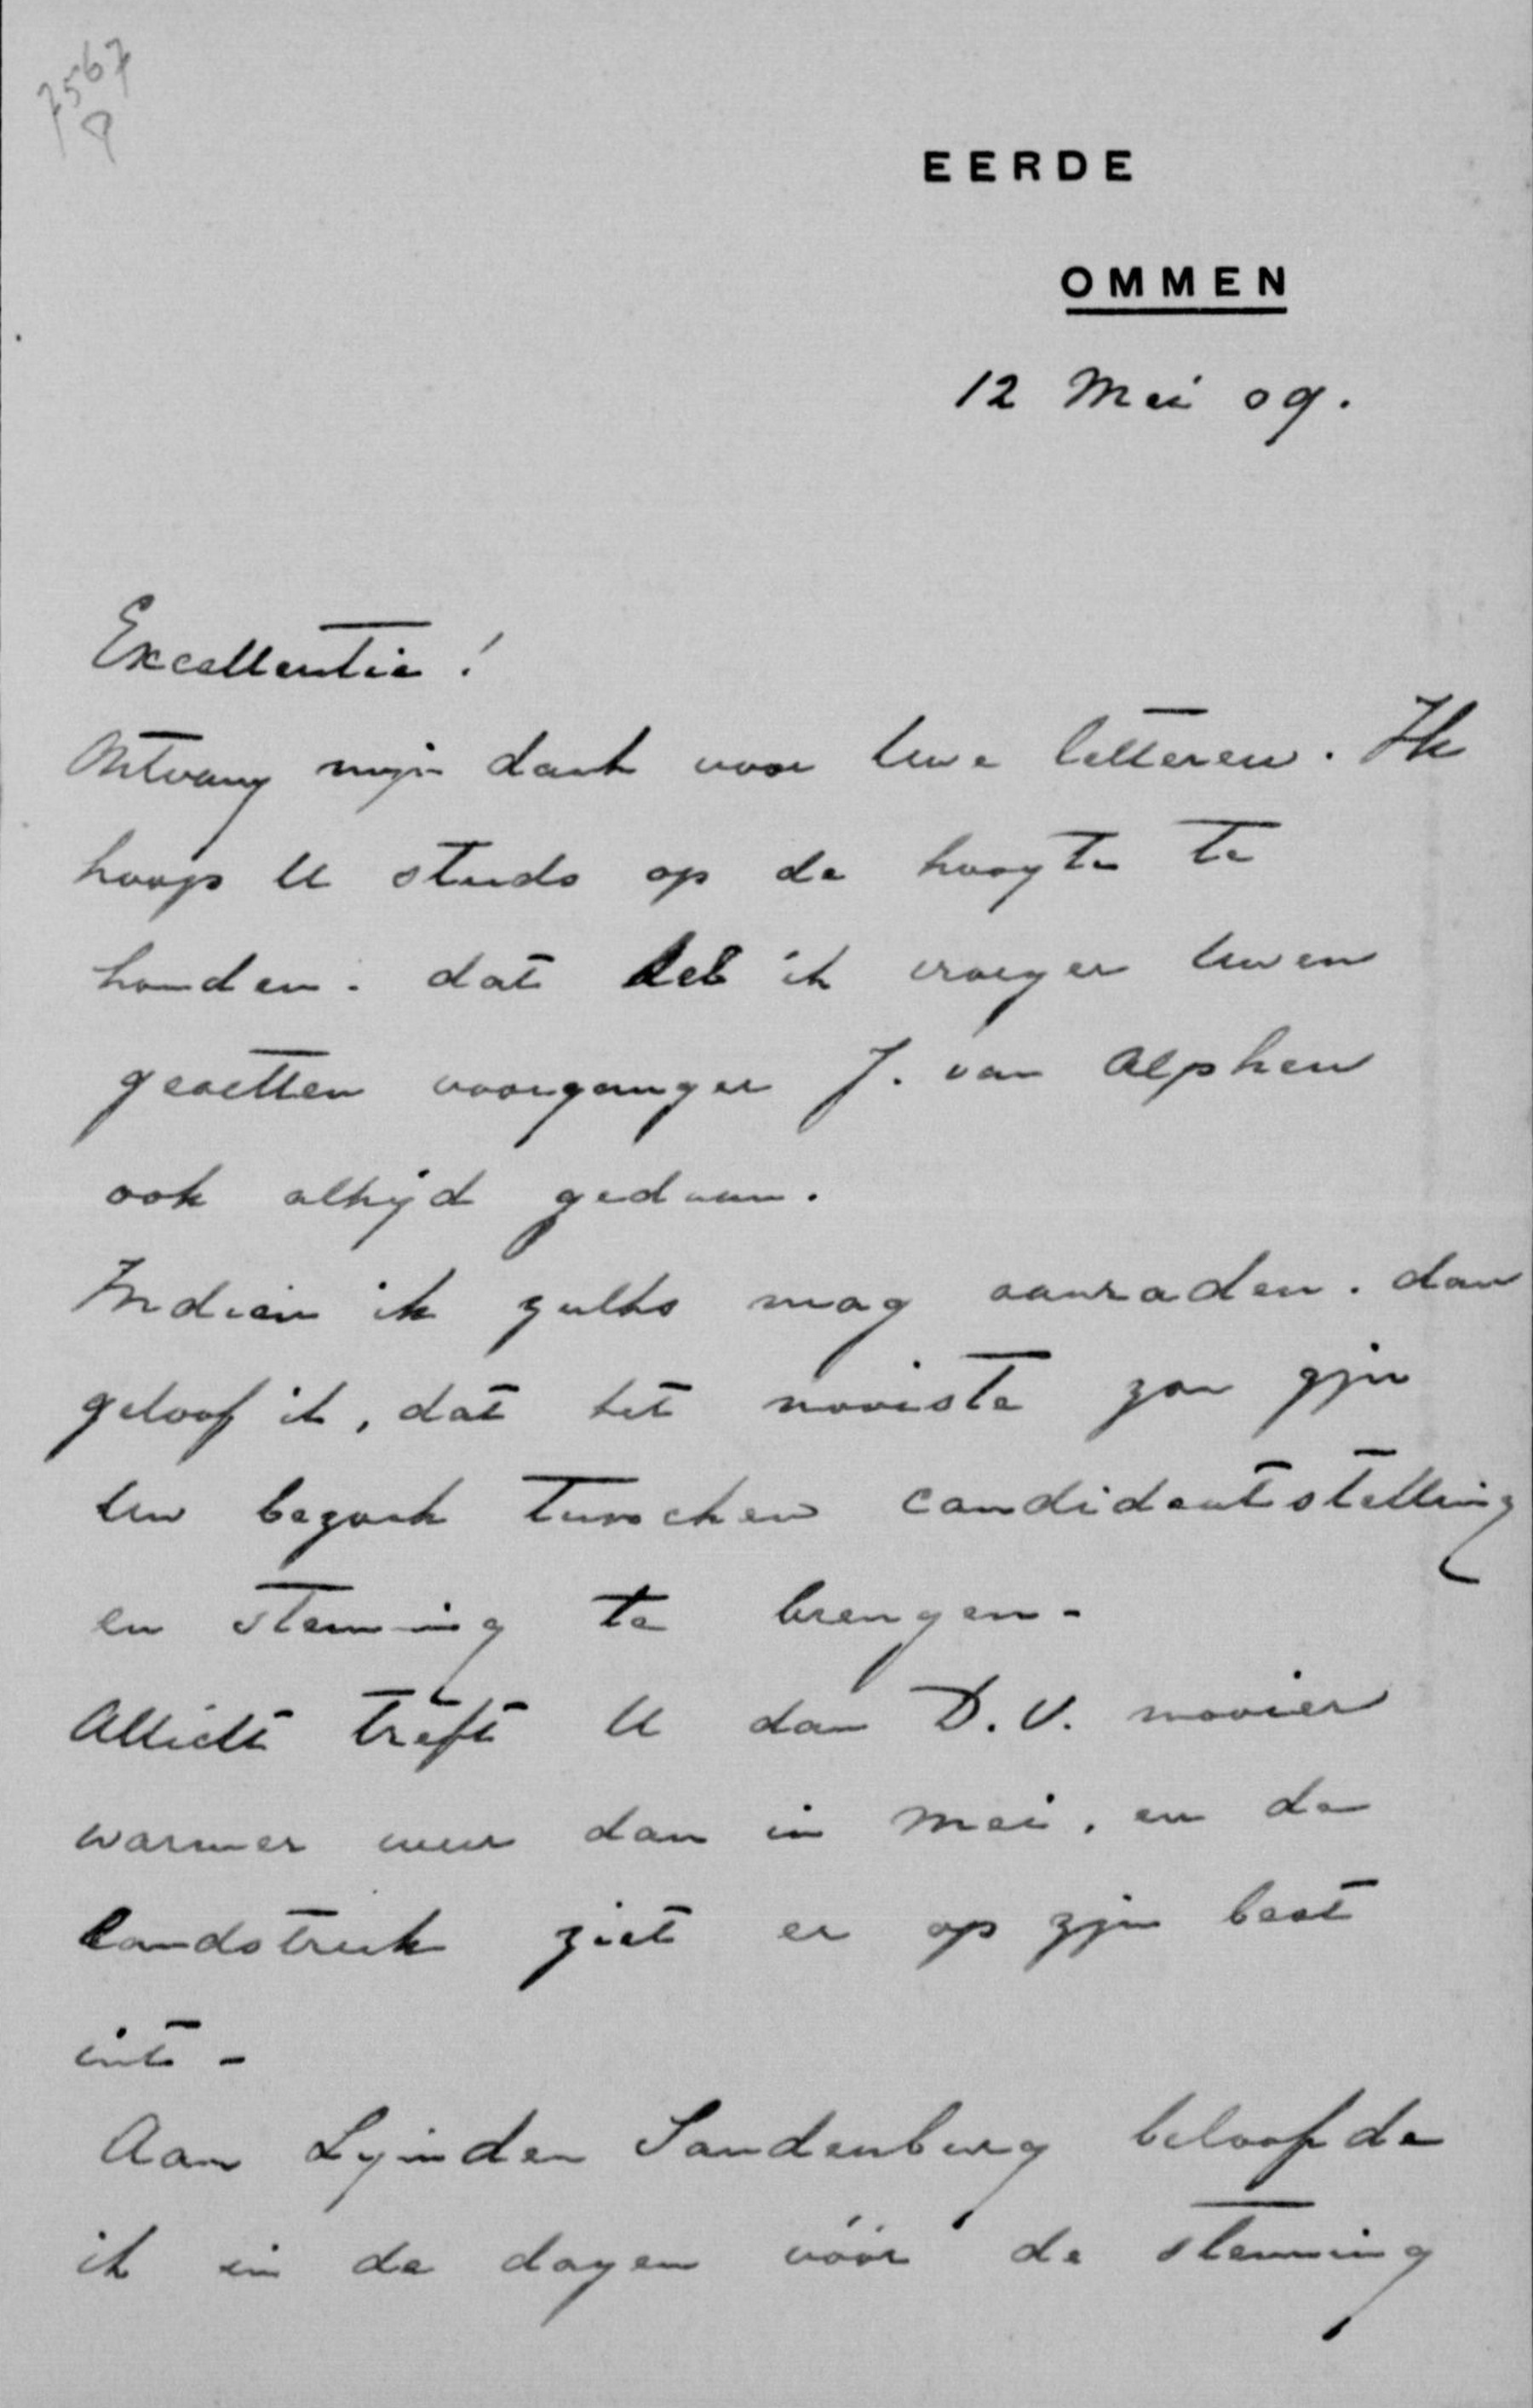 7567
EERDE
OMMEN
12 Mei 09.
Excellentie!
Ontvang mijn dank voor Uwe letteren. Ik
hoop U steeds op de hoogte te
houden. dat heb ik vroeger Uwen
geachten voorganger J. van Alphen
ook altijd gedaan.
Indien ik zulks mag aanraden. dan
geloof ik, dat het mooiste zou zijn
Uw bezoek tusschen candidaatstelling
en stemming te brengen.
Allicht treft U dan D.V. mooier
warmer weer dan in Mei, en de
landstreek ziet er op zijn best
uit -
Aan Lijnden Sandenburg beloofde
ik in de dagen vóór de stemming